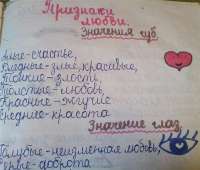 Признаки
любви.
Значения губ.
Алые-счастье,
Бледные-злые, красивые,
Тонкие-злость,
Толстые-любовь,
Красные-жгучие
Средние-красота
Значение глаз
Голубые-неизменная любовь,
Серые-доброта